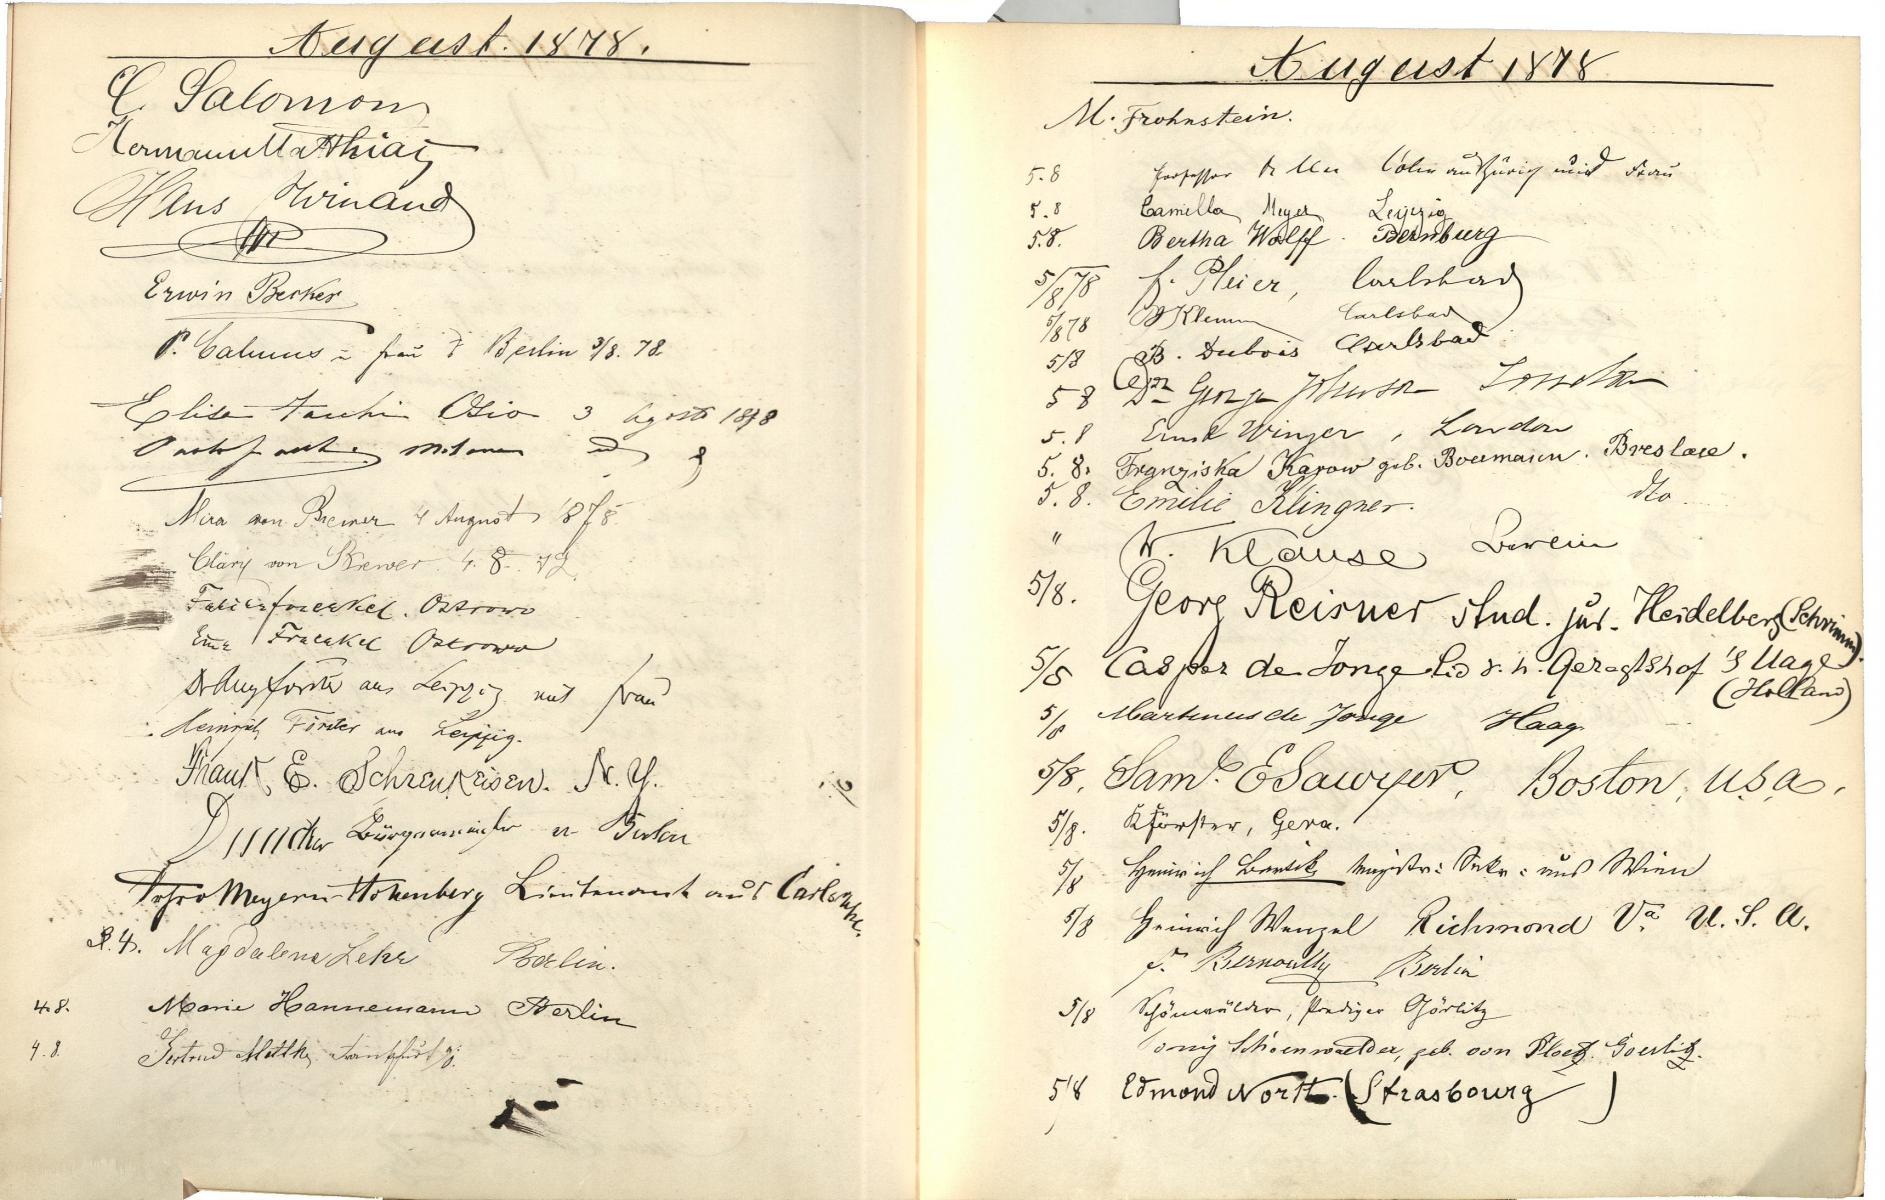 August. 1878.
C. Salomon
Hermann Matthiaß
Hans Wienand
Erwin Becker
P. Calmus u frau Berlin 3/8. 78.
Elisa Osio 3 Agosto 1878
Milano
von Brewer 4 August 1878.
Clāry von Brewer 4. 8. 78
Fraenkel. Ostrowo
Fraenkel Ostrowo
Dr Aug Förster aus Leipzig mit frau
Heinrich Förster aus Leipzig.
Frank E. Schrenkeisen. N. Y.
Duncker Bürgermeister Berlin
Meyern-Hohenberg Lieutenant aus Carlsruhe.
8.4. Magdalena Lehr Berlin.
4.8. Marie Hannemann Berlin
4.8. Gertrud Frankfurt a/O.
August 1878
M. Frohnstein.
5.8 Professor Dr aus Zürich und Frau
5.8 Camilla Meyer Leipzig
5.8. Bertha Wolff. Bernburg
5/8 78 f. Pleier, Carlsbad
5/8 78 Klemm Carlsbad
5/8 B. Dubois Carlsbad
5 8 Dr George Johnson London
5.8 Ernst Winzer, London
5.8. Franziska Karow geb. Boermann. Breslau.
5.8. Emilie Klingner. dto
" W. Klause Berlin
5/8. Georg Reisner stud. jur. Heidelberg (Schrimm).
5/8 Casper de Jonge Lid v. h. Geregtshof 's Hage
(Holland)
5/8 Martinus de Jonge Haag
5/8. Saml. E Sawyer, Boston, U.S.A.
5/8. K Förster, Gera.
5/8 Heinrich aus Wien
5/8 Heinrich Wenzel Richmond Va. U. S. A.
F. Bernoully Berlin
5/8 Schönwälder, Prediger Görlitz
Schoenwaelder, geb. von Ploetz. Goerlitz.
5/8 Edmond North. (Strasbourg)